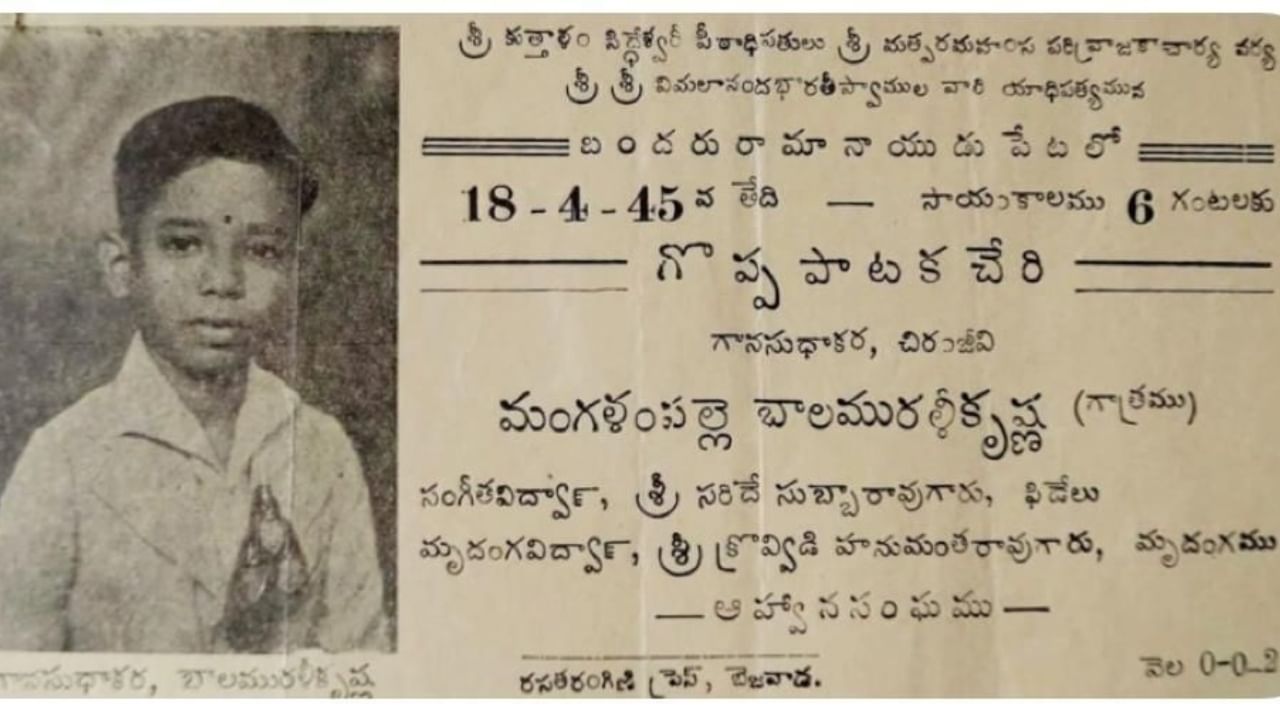 శ్రీ కుత్తాళం సిద్ధేశ్వరీ పీఠాధిపతులు శ్రీ మత్పరమహంస పరివ్రాజకాచార్య వర్య
శ్రీ శ్రీ విమలానందభారతీస్వాముల వారి యాధిపత్యమున
బందరురామానాయుడుపేటలో
18-4-45వ తేది — సాయంకాలము 6 గంటలకు
గొప్ప పాటకచేరి
గానసుధాకర, చిరంజీవి
మంగళంపల్లె బాలమురళీకృష్ణ (గాత్రము)
సంగీతవిద్వాన్, శ్రీ సరిదే సుబ్బారావుగారు, ఫిడేలు
మృదంగవిద్వాన్, శ్రీ క్రొవ్విడి హనుమంతరావుగారు, మృదంగము
— ఆహ్వానసంఘము —
గానసుధాకర, బాలమురళీకృష్ణ
రసతరంగిణి ప్రెస్, బెజవాడ.
వెల 0-0-2